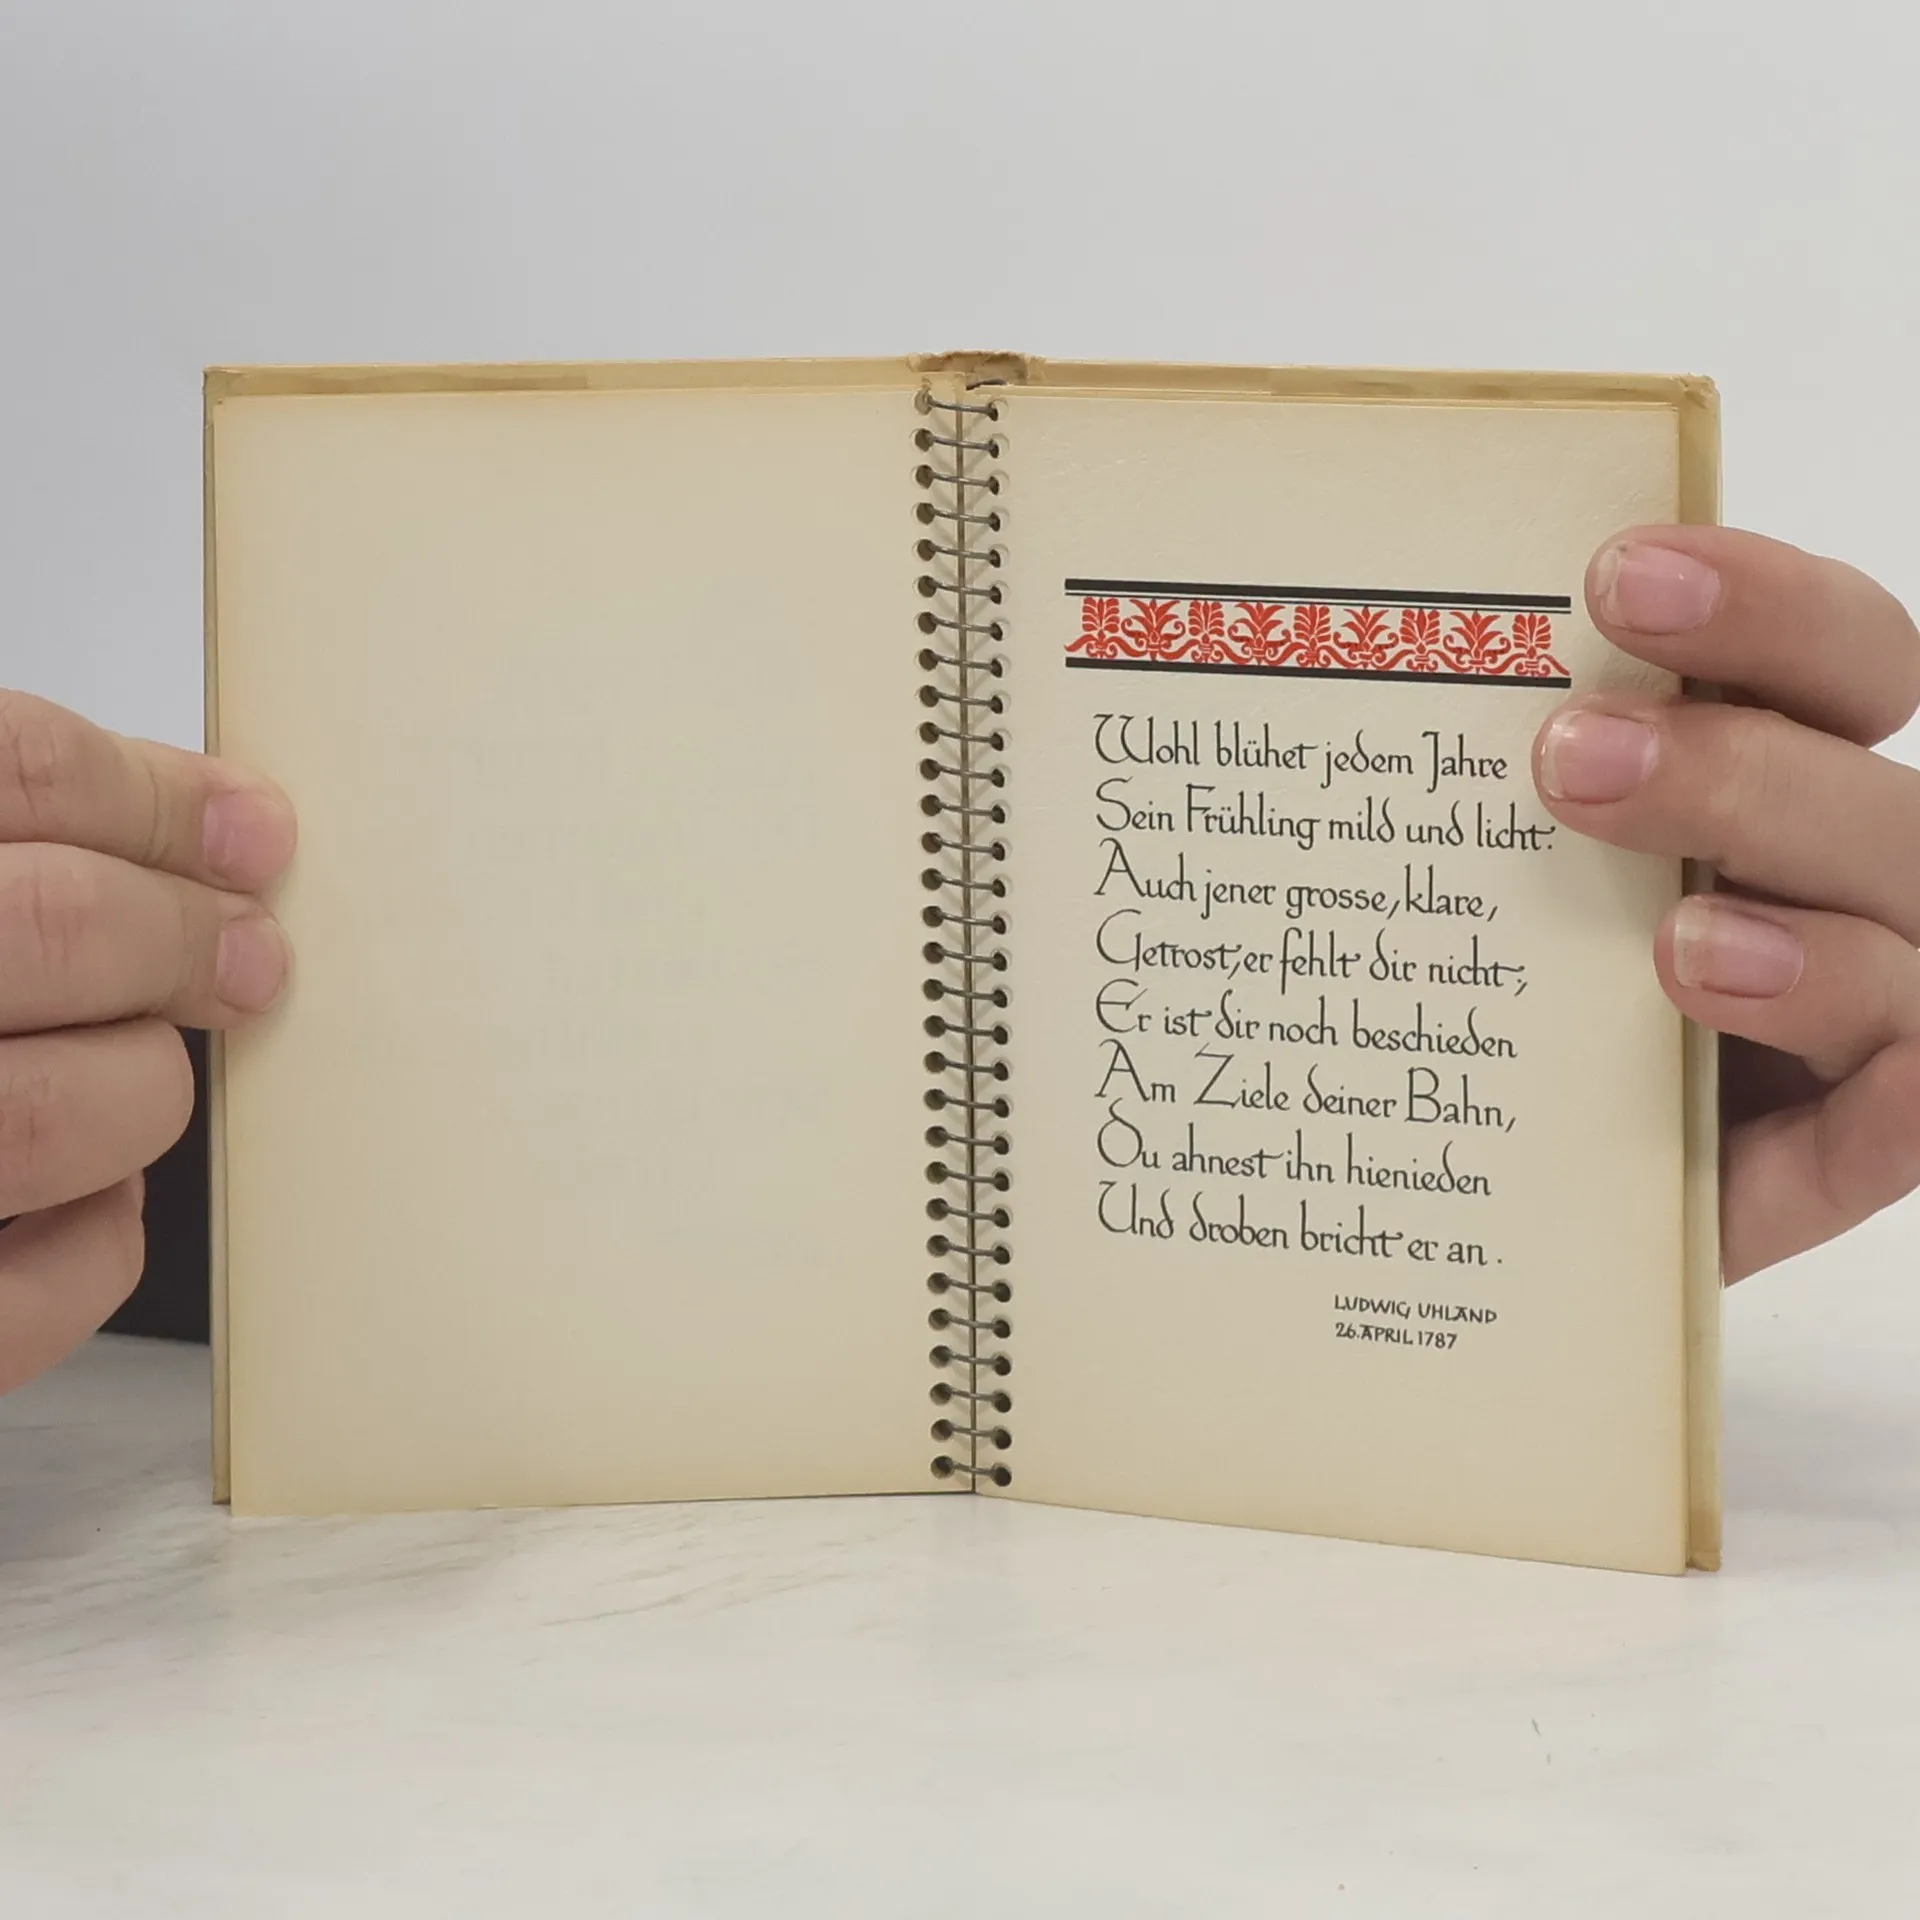 Wohl blühet jedem Jahre
Sein Frühling mild und licht.
Auch jener grosse, klare,
Getrost, er fehlt dir nicht;
Er ist dir noch beschieden
Am Ziele deiner Bahn,
Du ahnest ihn hienieden
Und droben bricht er an.
LUDWIG UHLAND
26. APRIL 1787